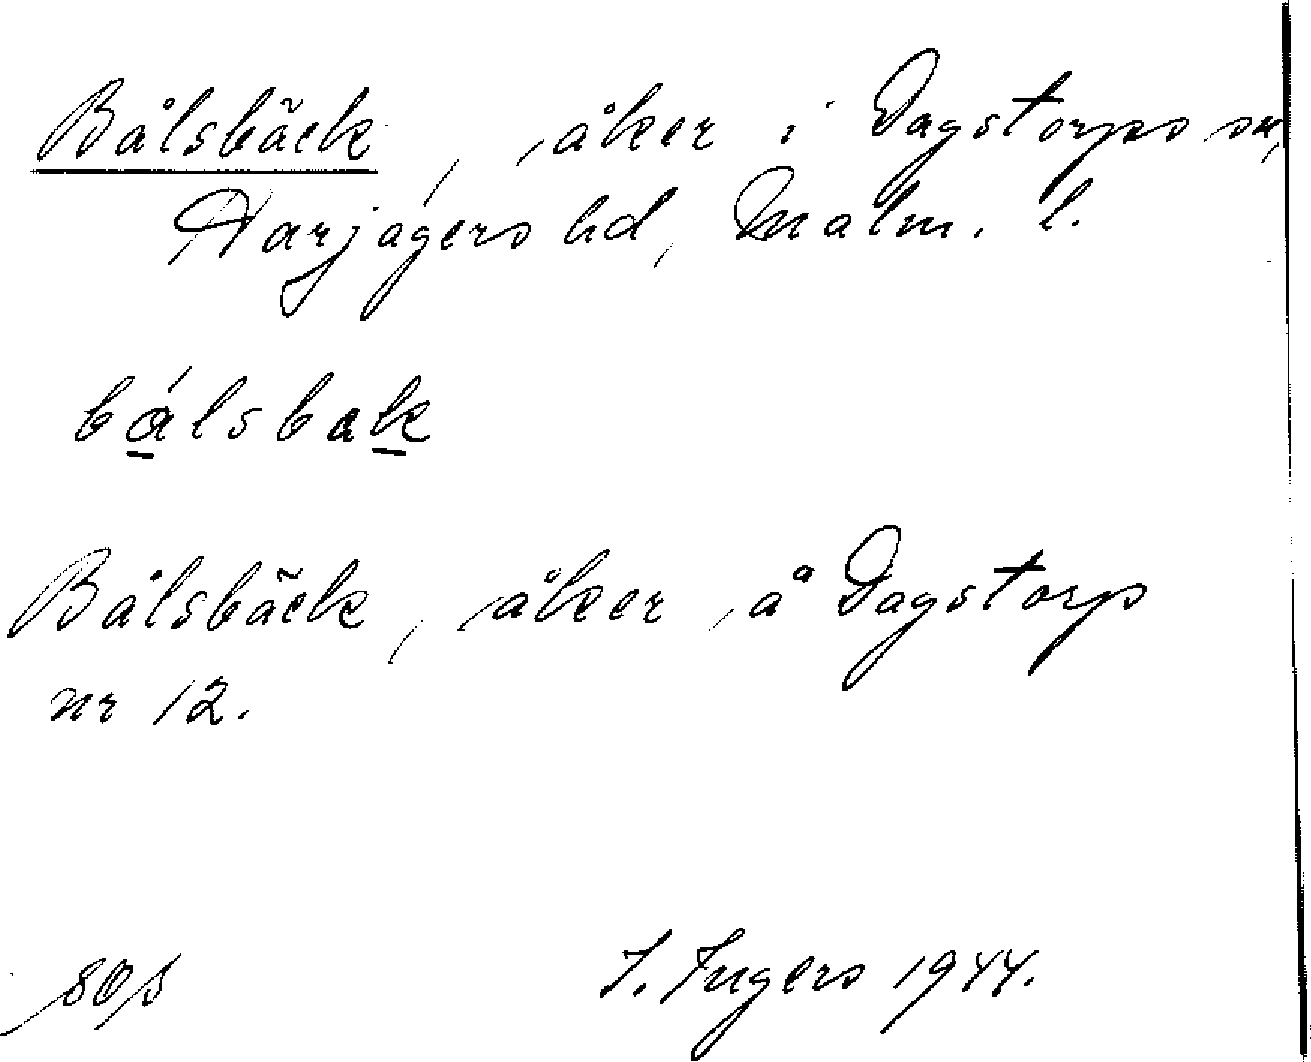 Bålsbäck, åker i Dagstorps sn,
Harjagers hd, Malm. l.
bálsbak
Bålsbäck, åker å Dagstorp
nr 12.
I. Ingers 1944.